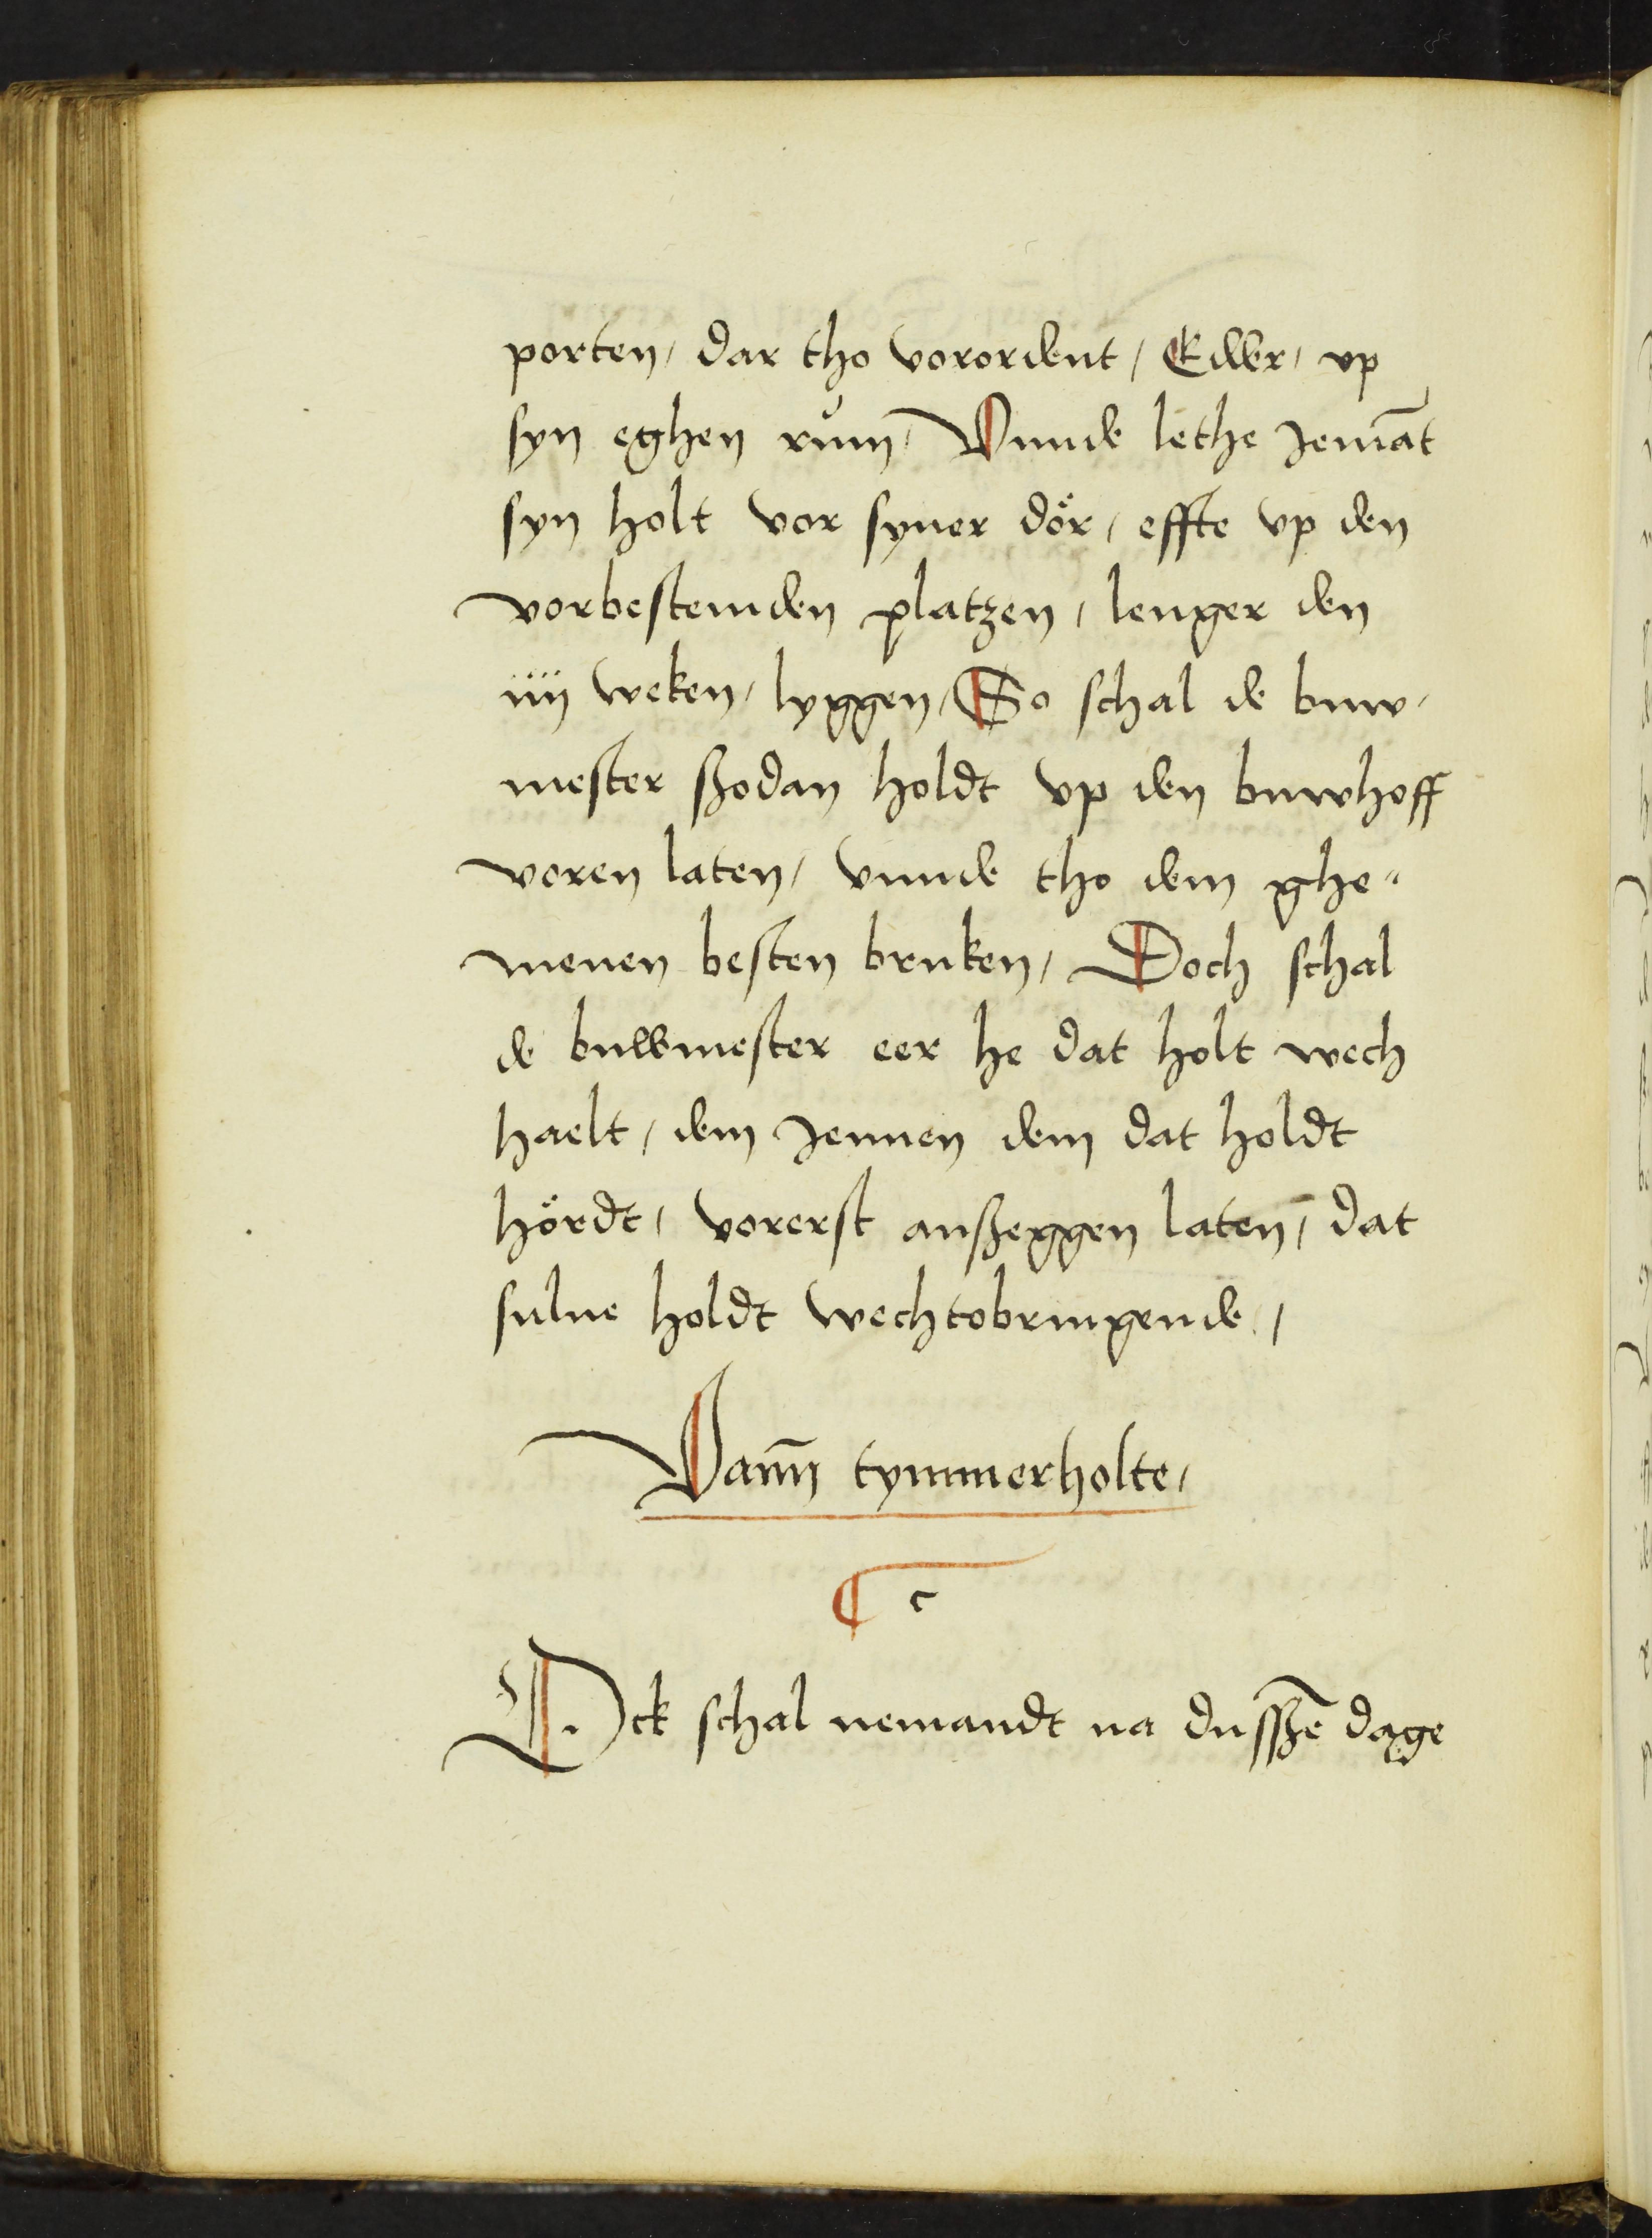 porten, dar tho vorordent, Edder, vp
syn eghen rům, Vnnde lethe Jemāt
syn holt vor syner dör, effte vp den
vorbestemden platzen, lenger den
iiij weken, lyggen, So schal de buw,
mester szodan holdt vp den buwhoff
voren laten, vnnde tho dem ghe,,
menen besten bruken, Doch schal
de buwmester eer he dat holt wech
haelt, dem Jennen dem dat holdt
hördt, vorerst anszeggen laten, dat
sulue holdt wechtobringende,
Vann̄ tymmerholte,
¶ c
Ock schal nemandt na dusszē dage